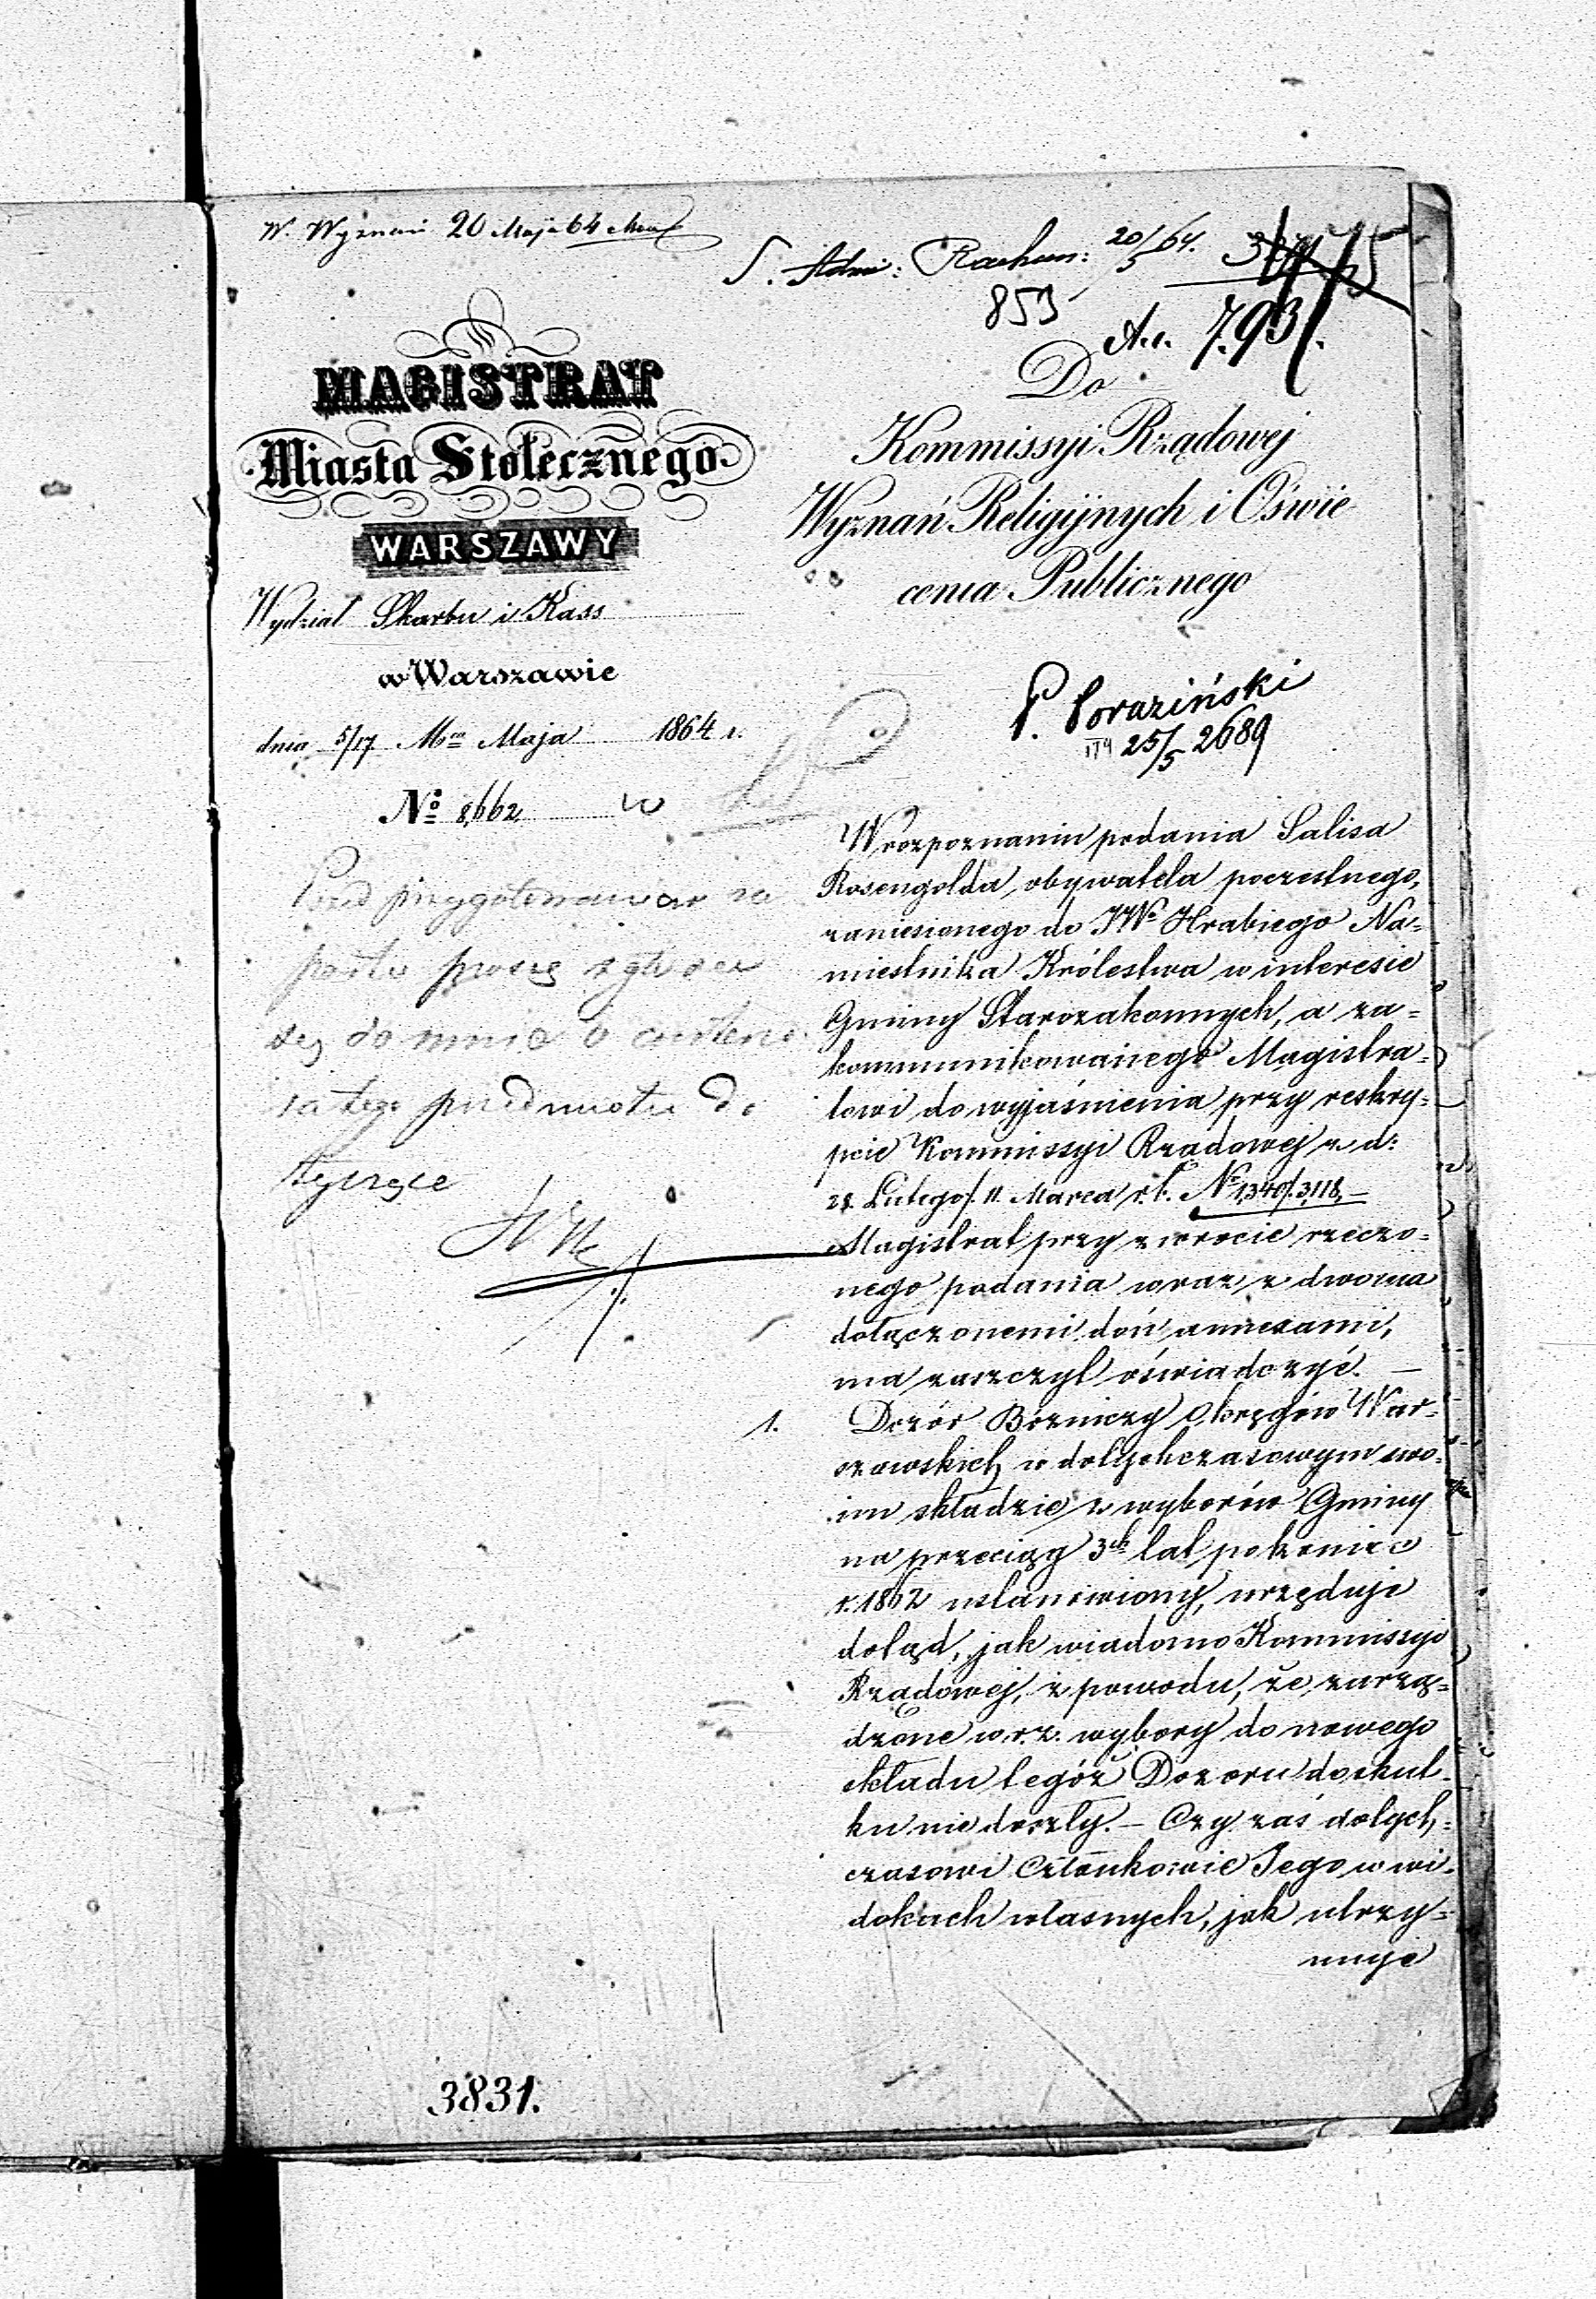 W. Wyznań 20 Maja 64
S. Adm: Rachun: 20/5 64.
853
A.c. 7.931.
MAGISTRAT
Miasta Stołecznego
WARSZAWY
Wydział Skarbu i Kass
w Warszawie
dnia 5/17 Mca Maja 1864 r.
No 8,662
Do
Kommissyi Rządowej
Wyznań Religijnych i Oświe
cenia Publicznego
P. Poraziński
25/5 2689
Przed przygotowaniem ra
portu proszę zgłosić
się do mnie o
tego przedmiotu do
tyczące
W rozpoznaniu podania Salisa
Rosengolda, obywatela poczestnego,
zaniesionego do JWo Hrabiego Na=
miestnika Królestwa w interesie
Gminy Starozakonnych, a za=
kommunikowanego Magistra=
towi do wyjaśnienia przy reskry=
pcie Kommissyi Rządowej z d:
28. Lutego/11 Marca r.b. No 1,340/3,118, —
Magistrat przy zwrocie rzeczo=
nego podania wraz z dwoma
dołączonemi doń annexami,
ma zaszczyt oświadczyć. —
1. Dozór Bóżniczy Okręgów War=
szawskich w dotychczasowym swo=
im składzie z wyborów Gminy
na przeciąg 3ch lat po koniec
r. 1862 ustanowiony, urzęduje
dotąd, jak wiadomo Kommissyi
Rządowej, z powodu, że zarzą=
dzone w r.z. wybory do nowego
składu tegóż Dozoru do skut=
ku nie doszły. — Czy zaś dotych=
czasowi Członkowie Jego w wi=
dokach własnych, jak utrzy=
muje
3831.